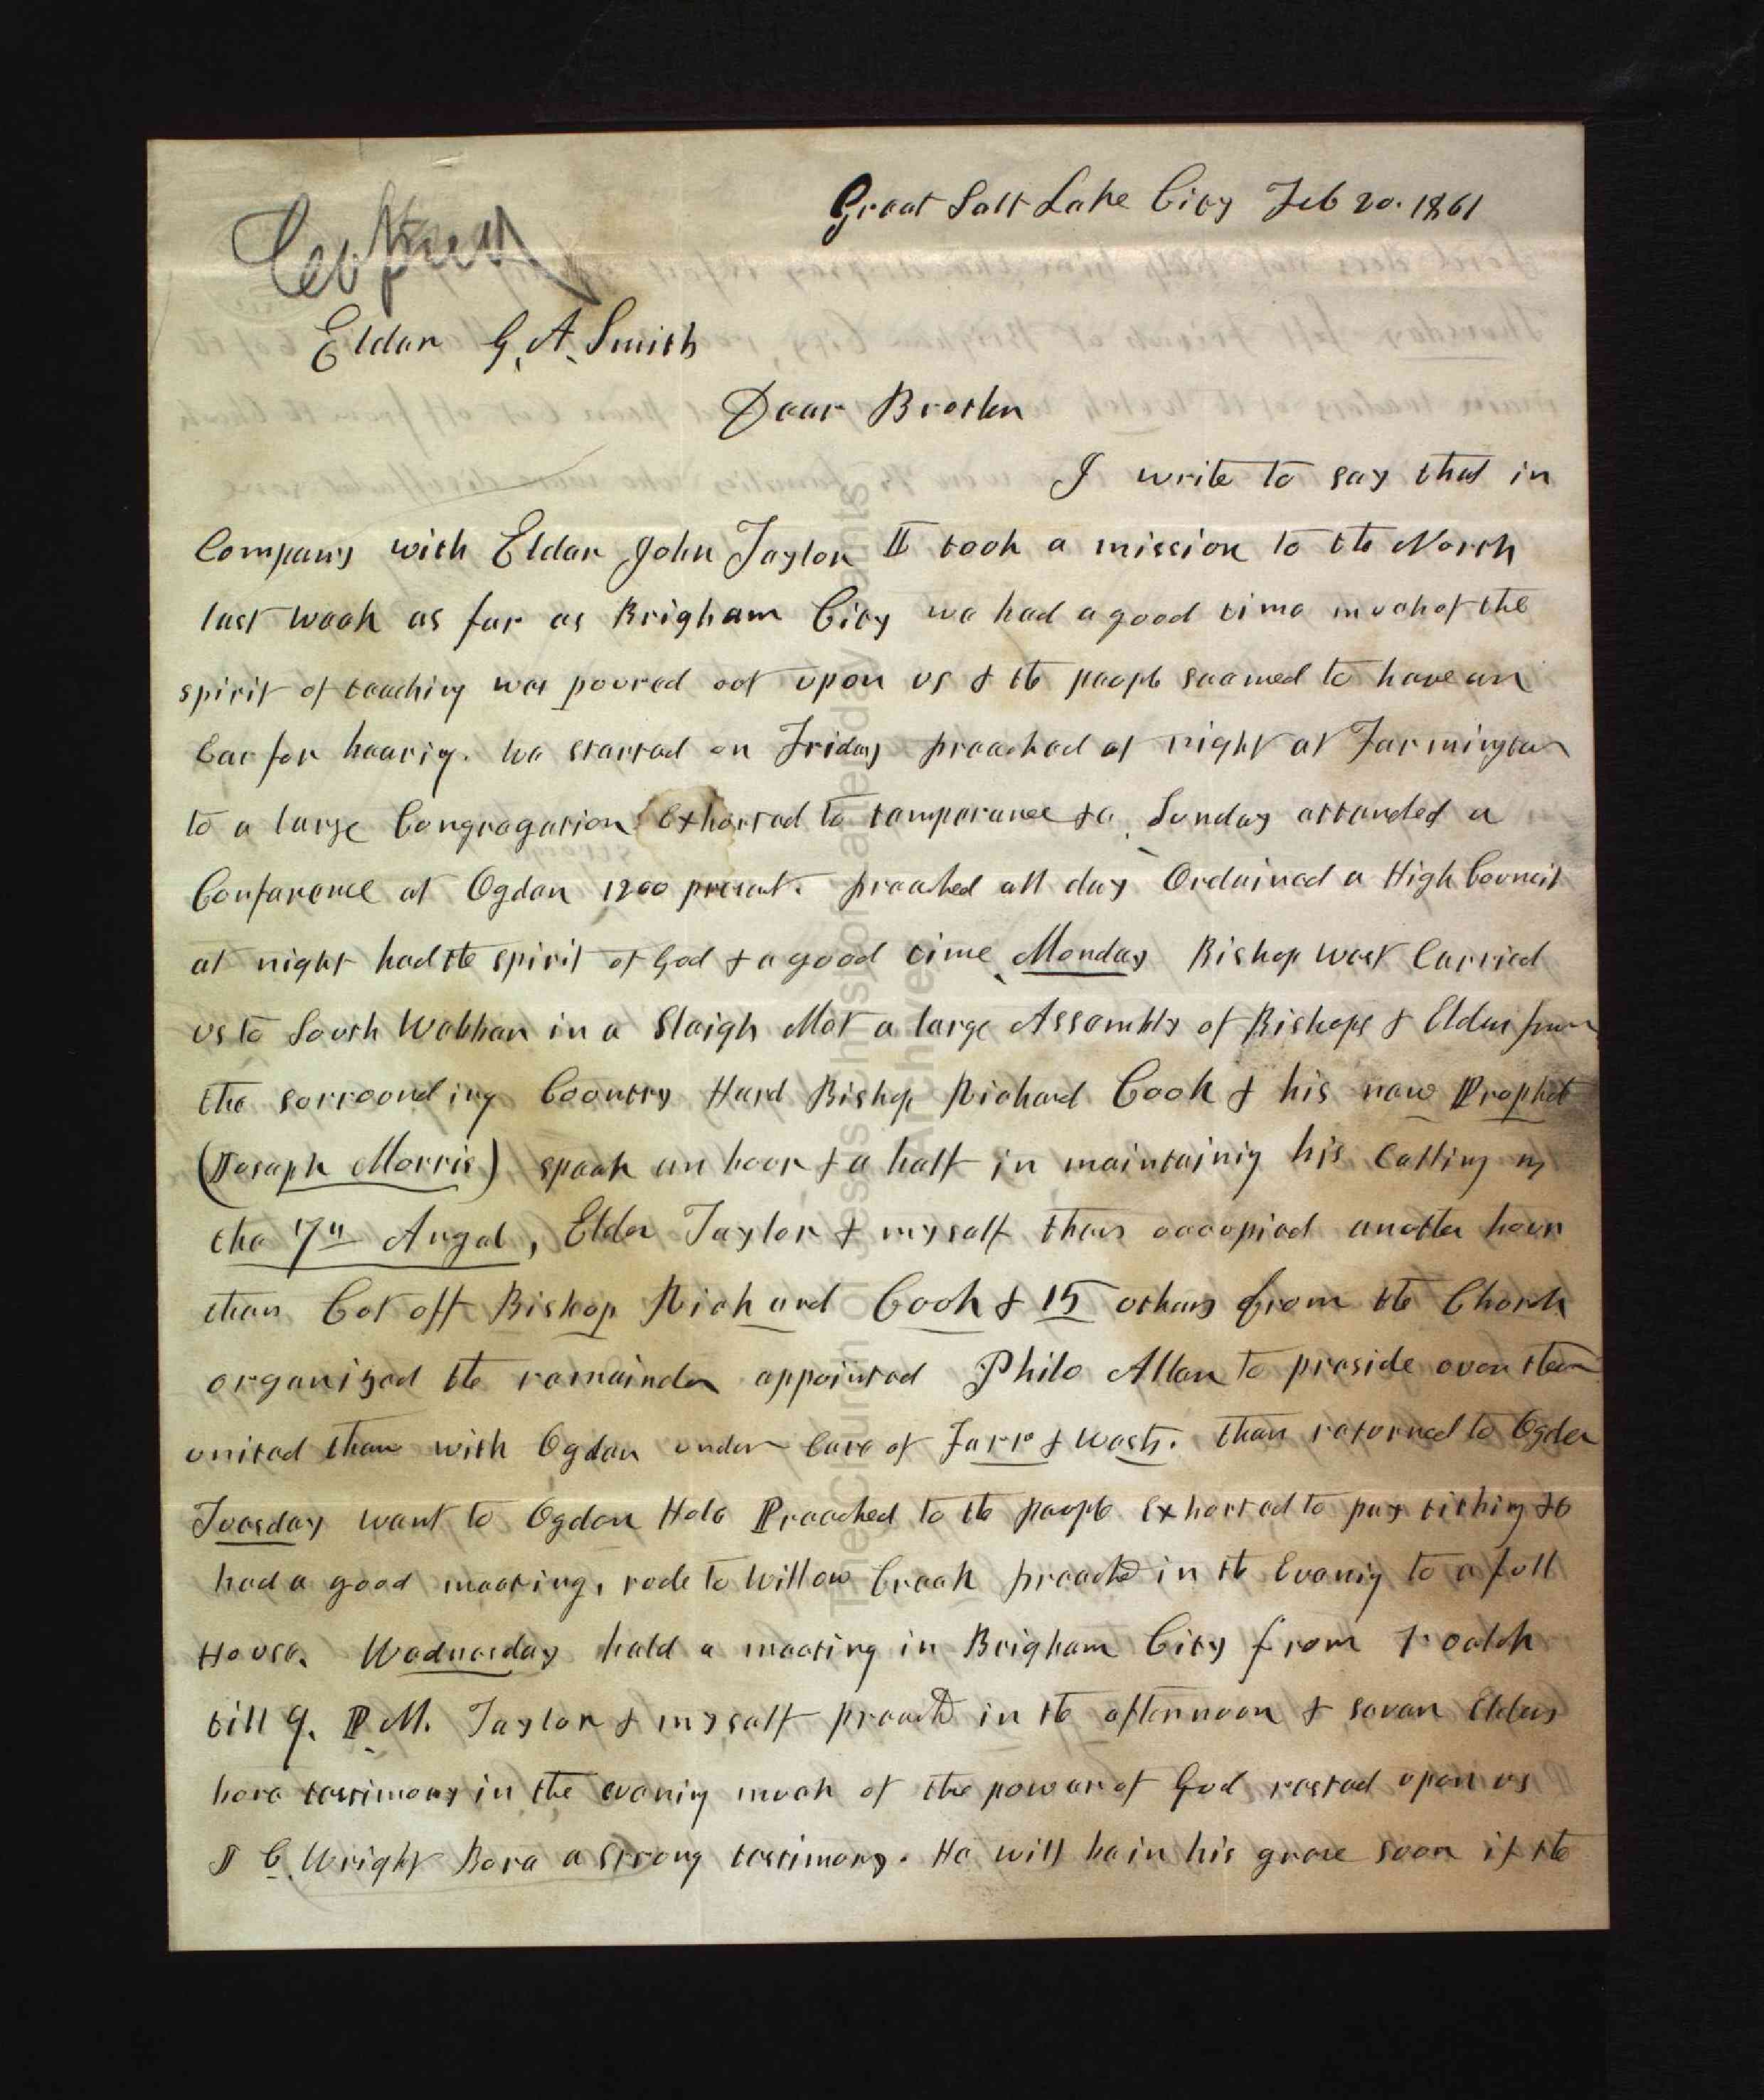 Great Salt Lake City Feb 20. 1861
Copied
Elder G. A. Smith
Dear Brother
I write to say that in
Company with Elder John Taylor I took a mission to the North
last week as far as Brigham City we had a good time much of the
spirit of teaching was poured out upon us & the people seemed to have an
Ear for hearig. We started on Friday preached at night at Farmington
to a large Congregation Exhorted to temperance &c. Sunday attended a
Conference at Ogden 1200 present. preached all day Ordained a High Council
at night had the spirit of God & a good time, Monday Bishop West Carried
us to South Webber in a Sleigh Met a large Assembly of Bishops & Elders from
the surrounding Country Hard Bishop Richard Cook & his new Prophet
(Joseph Morris) speak an hour & a half in maintainig his Calling as
the 7th Angel, Elder Taylor & myself then occupied another hour
then Cut off Bishop Richard Cook & 15 others from the Church
organized the remainder appointed Philo Allen to preside over them
united them with Ogden under Care of Farr & West. then returned to Ogden
Tuesday went to Ogden Hole Preached to the people Exhorted to pay tithing &c
had a good meeting, rode to Willow Creek preachd in the Evenig to a full
House. Wednesday held a meeting in Brigham City from 1 oclok
till 9. P.M. Taylor & myself preachd in the afternoon & seven Elders
bore testimony in the evenig much of the power of God rested upon us
J C. Wright Bore a strong testimony. He will be in his grave soon if the
The Church of Jesus Christ of Latter-day Saints
Archives